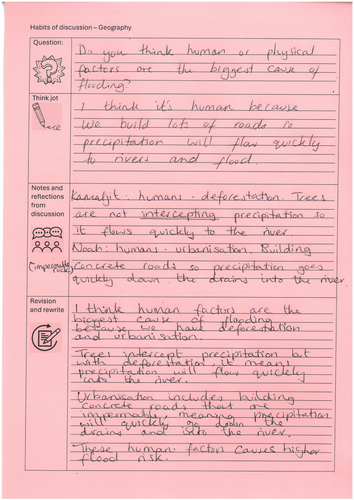 Habits of discussion – Geography
Question:
Do you think human or physical
factors are the biggest cause of
flooding?
Think jot
I think it's human because
we build lots of roads so
precipitation will flow quickly
to rivers and flood.
Notes and
reflections
from
discussion
Kamaljit: humans - deforestation. Trees
are not intercepting precipitation so
it flows quickly to the river.
Noah: humans - urbanisation. Building
concrete roads so precipitation goes
quickly down the drains into the river.
Revision
and rewrite
I think human factors are the
biggest cause of flooding
because we have deforestation
and urbanisation.
Trees intercept precipitation but
with deforestation it means
precipitation will flow quickley
into the river.
Urbanisation includes building
concrete roads that are
impermable, meaning precipitation
will quickly go down the
drains and into the river.
These human factors causes higher
flood risk.